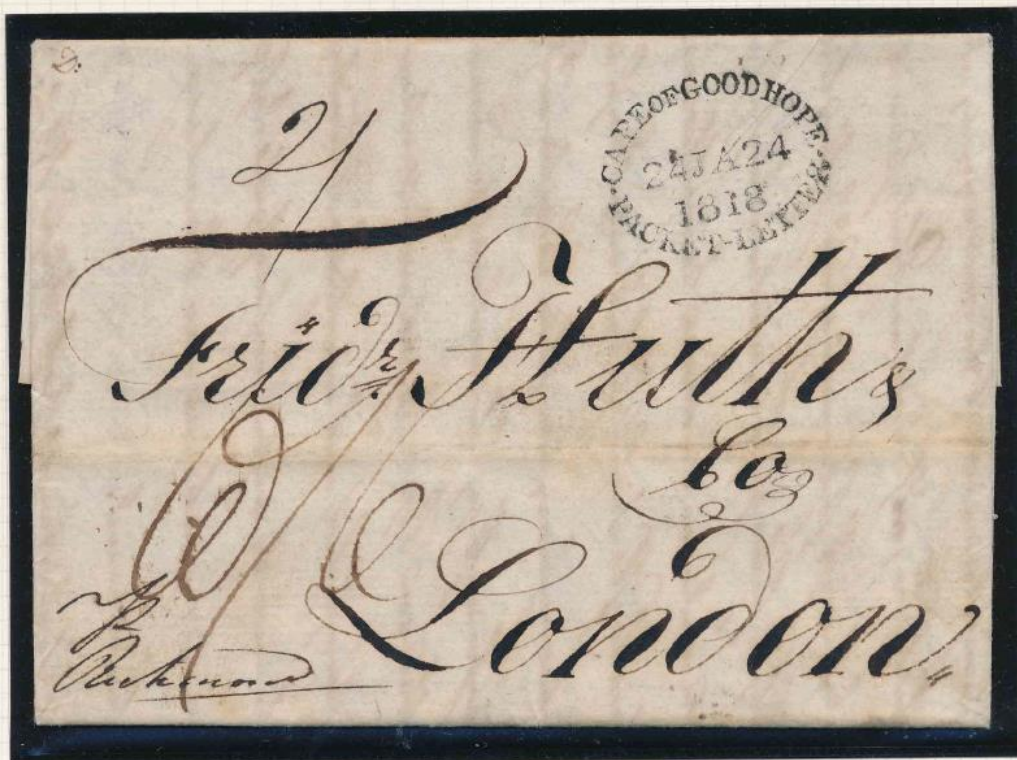 2.
2/
CAPE OF GOOD HOPE
24 JA 24
1818
PACKET-LETTER
Fridr. Huth &
Co
London